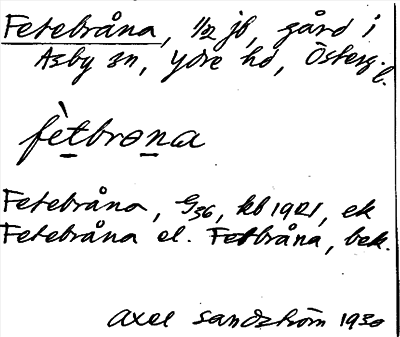 Fetebråna, 1/2 jb, gård i
Asby sn, Ydre hd, Österg. l.
fètbrona
Fetebråna, G 36, kb 1921, ek
Fetebråna el. Fetbråna, bek.
Axel Sandström 1930